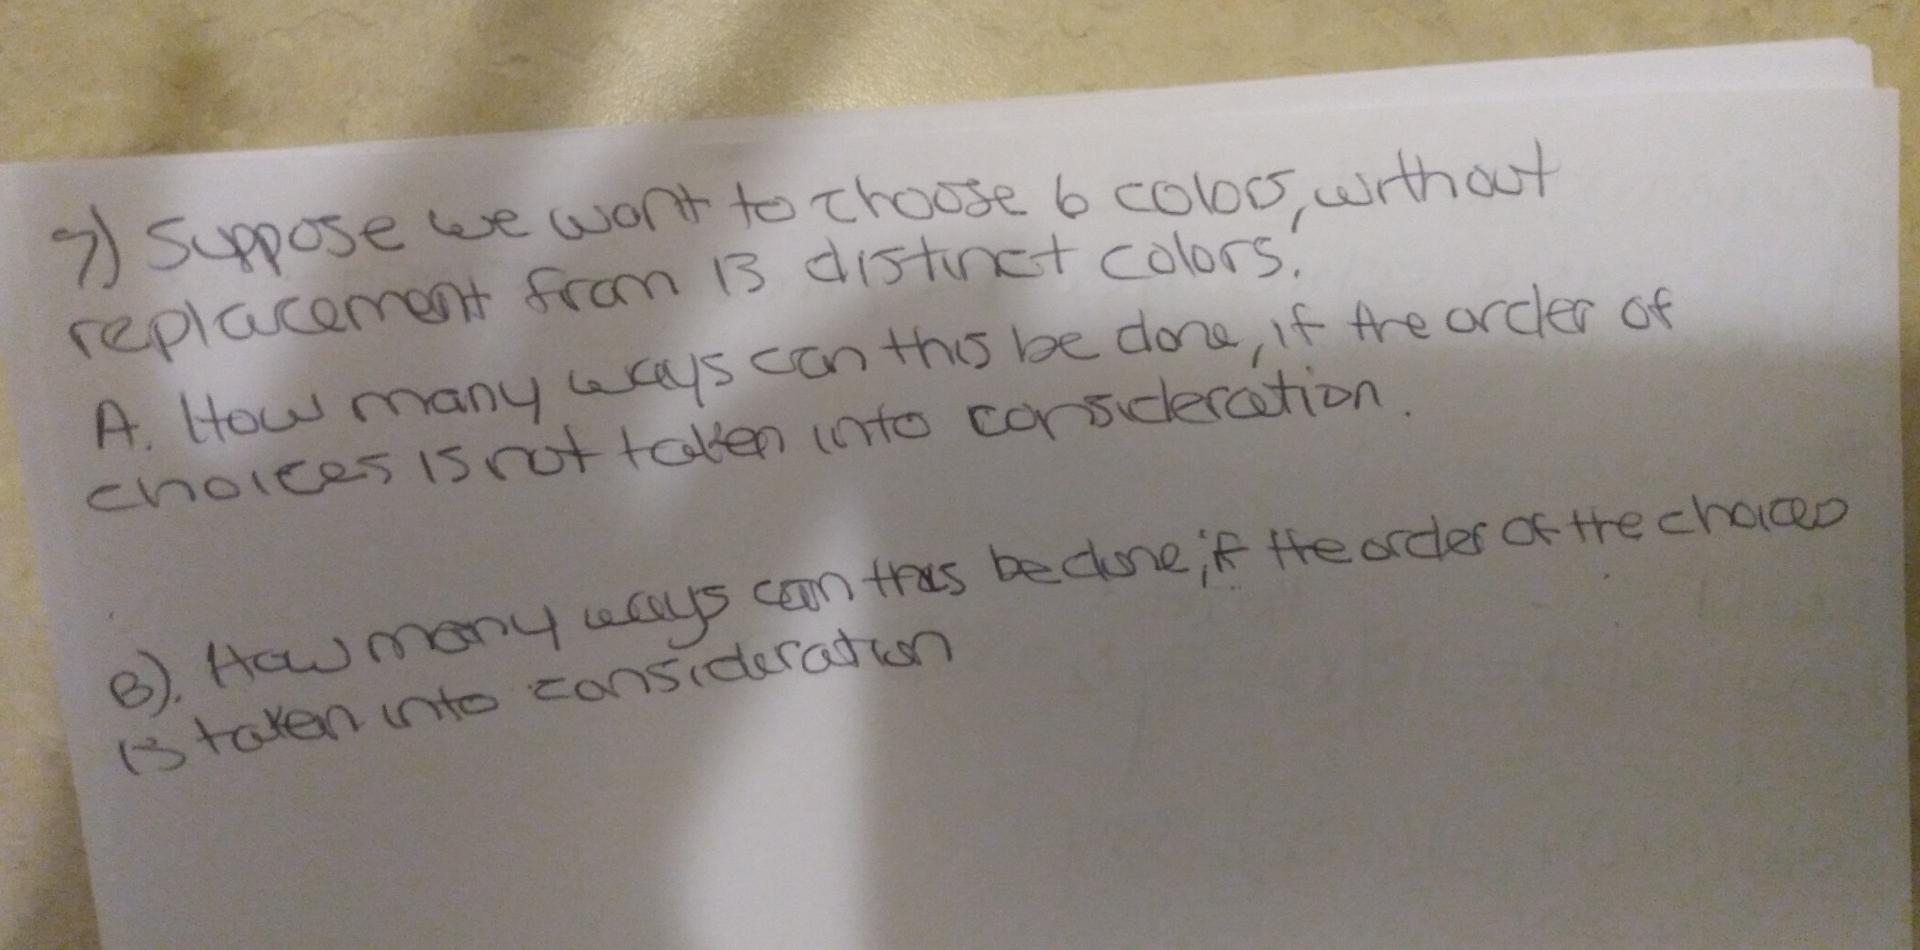 7) Suppose we want to choose 6 colors, without
replacement from 13 distinct colors.
A. How many ways can this be done, if the order of
choices is not taken into consideration.
B). How many ways can this be done, if the order of the choices
is taken into consideration